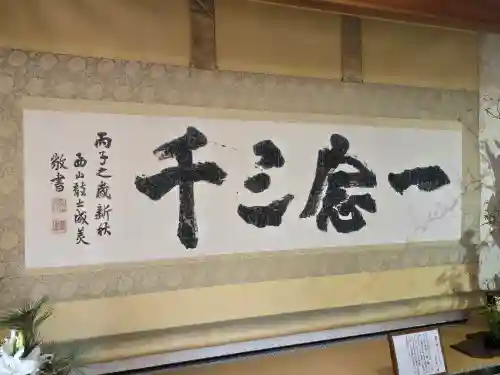 一念三千
丙子之歳新秋
西山龍士成美
敬書